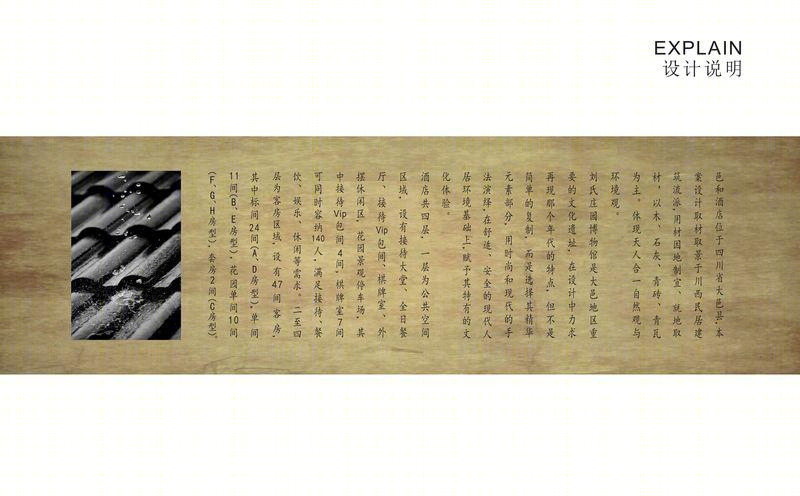 EXPLAIN
设计说明
邑和酒店位于四川省大邑县,本
案设计取材取景于川西民居建
筑流派,用材因地制宜、就地取
材,以木、石灰、青砖、青瓦
为主。体现天人合一自然观与
环境观。
刘氏庄园博物馆是大邑地区重
要的文化遗址,在设计中力求
再现那个年代的特点,但不是
简单的复制,而是选择其精华
元素部分,用时尚和现代的手
法演绎,在舒适、安全的现代人
居环境基础上,赋予其特有的文
化体验。
酒店共四层,一层为公共空间
区域,设有接待大堂、全日餐
厅、接待Vip包间、棋牌室、外
摆休闲区,花园景观停车场,其
中接待Vip包间4间,棋牌室7间
可同时容纳140人,满足接待、餐
饮、娱乐、休闲等需求。二至四
层为客房区域,设有47间客房,
其中标间24间(A、D房型),单间
11间(B、E房型),花园单间10间
(F、G、H房型),套房2间(C房型)。